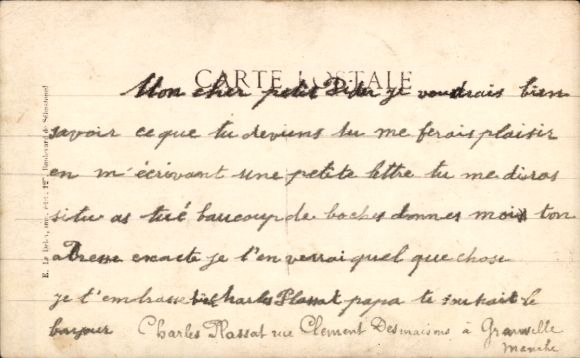 CARTE POSTALE
Mon cher petit Didier je voudrais bien
savoir ce que tu deviens tu me ferais plaisir
en m'écrivant une petite lettre tu me diras
si tu as tué baucoup de boches donnes mois ton
adresse exacte je t'en verrai quel que chose
je t'embrasse Charles Plassat papa te souhait le
bonjour Charles Plassat rue Clement Desmaisons à Granville
Manche
E. Le Deley, imp.-édit., 127, Boulevard de Sébastopol